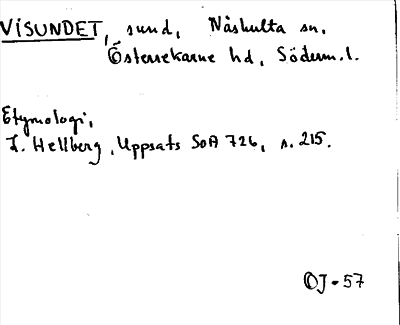 VISUNDET, sund, Nåshulta sn,
Österrekarne hd, Söderm.l.
Etymologi,
L. Hellberg, Uppsats SoA 726, s. 215.
OJ-57